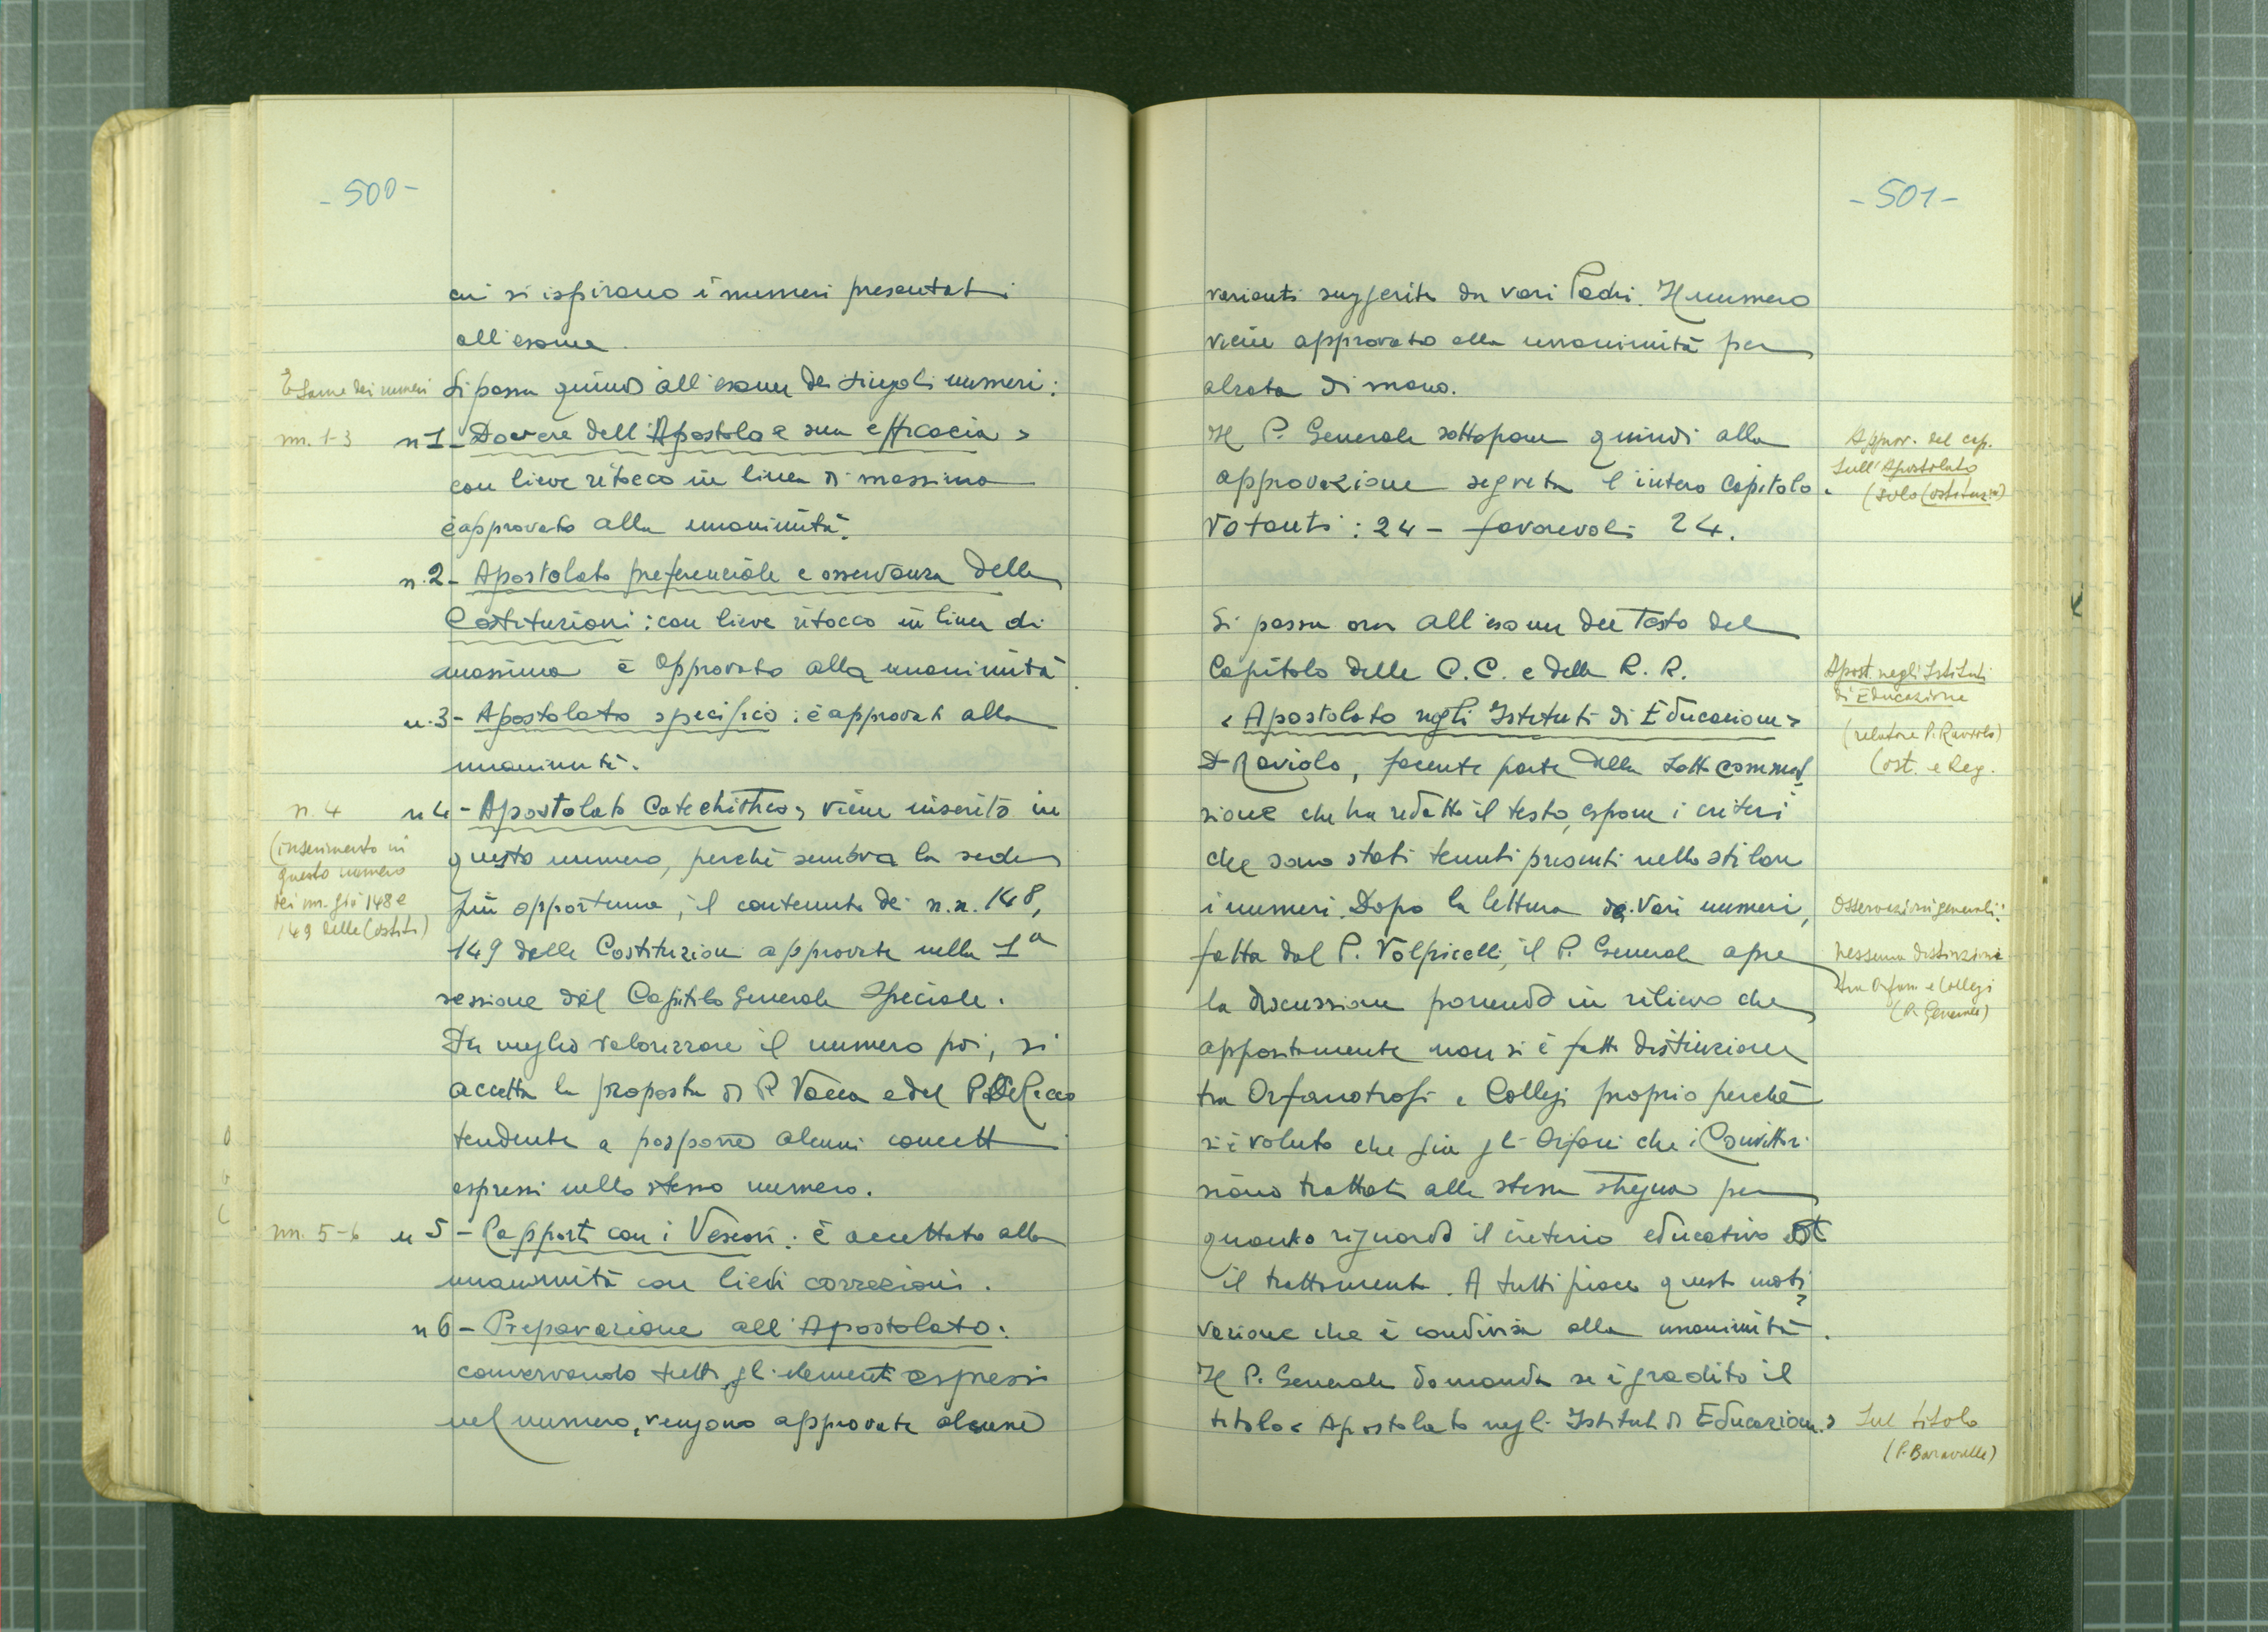 - 500 -
cui si ispirano i numeri presentati
all'esame.
Esame dei numeri
Si passa quindi all'esame dei singoli numeri:
nn. 1-3
n 1 - Dovere dell'Apostolo e sua efficacia >
con lieve ritocco in linea di massima
è approvato alla unanimità.
n. 2 - Apostolato preferenziale e osservanza delle
Costituzioni : con lieve ritocco in linea di
massima è approvato alla unanimità.
n. 3 - Apostolato specifico : è approvato alla
unanimità.
n. 4
(inserimento in
questo numero
dei nn. già 148 e
149 delle Costit.)
n 4 - Apostolato Catechistico, viene inserito in
questo numero, perché sembra la sede
più opportuna, il contenuto dei n.n. 148,
149 delle Costituzioni approvate nella 1a
sessione del Capitolo Generale Speciale.
Per meglio valorizzare il numero poi, si
accetta la proposta di P. Vacca e del P. De Rocco
tendente a posporre alcuni concetti
espressi nello stesso numero.
nn. 5-6
n 5 - Rapporti con i Vescovi : è accettato alla
unanimità con lievi correzioni.
n 6 - Preparazione all'Apostolato :
conservando tutti gli elementi espressi
nel numero, vengono approvate alcune
- 501 -
varianti suggerite da vari Padri. Il numero
viene approvato alla unanimità per
alzata di mano.
Il P. Generale sottopone quindi alla
approvazione segreta l'intero Capitolo.
Votanti : 24 - favorevoli 24.
Approv. del cap.
sull'Apostolato
(solo Costituzioni)
Si passa ora all'esame del Testo del
Capitolo delle C.C. e delle R.R.
< Apostolato negli Istituti di Educazione >
Apost. negli Istituti
di Educazione
(relatore P. Raviolo)
Cost. e Reg.
P. Raviolo, facente parte della sottocommis
sione che ha redatto il testo, espone i criteri
che sono stati tenuti presenti nello stilare
i numeri. Dopo la lettura dei vari numeri,
fatta dal P. Volpicelli, il P. Generale apre
la discussione ponendo in rilievo che
appositamente non si è fatta distinzione
tra Orfanotrofi e Collegi proprio perché
si è voluto che sia gli Orfani che i Convittori
siano trattati alla stessa stregua per
quanto riguarda il criterio educativo ed
il trattamento. A tutti piace questa moti
vazione che è condivisa alla unanimità.
Osservazioni generali:
nessuna distinzione
tra Orfan. e Collegi
(P. Generale)
Il P. Generale domanda se è gradito il
titolo < Apostolato negli Istituti di Educazione >
Sul titolo
(P. Baravalle)